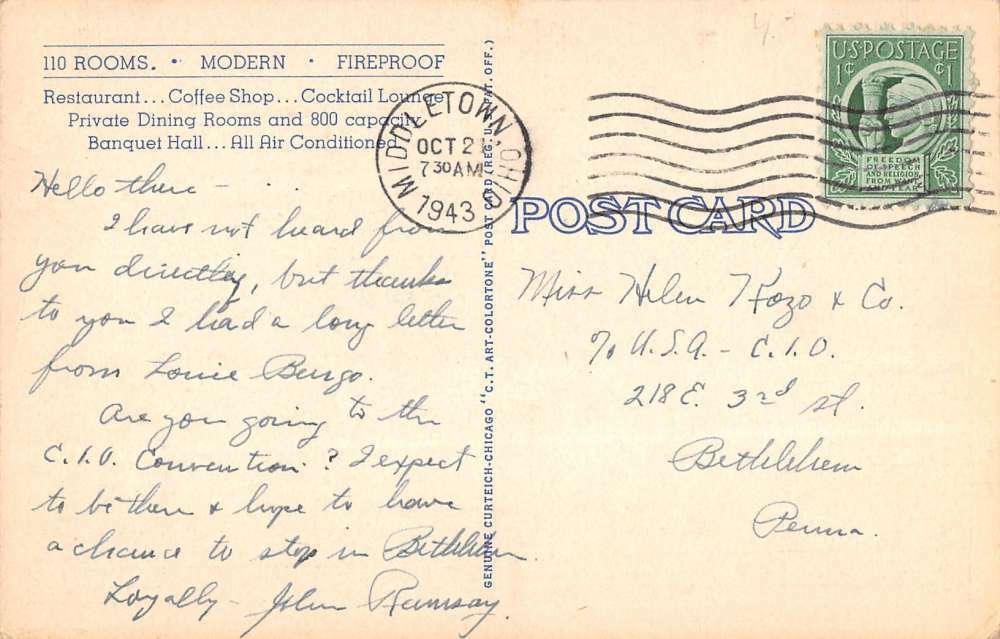 110 ROOMS. • MODERN • FIREPROOF
Restaurant... Coffee Shop... Cocktail Lounge
Private Dining Rooms and 800 capacity
Banquet Hall... All Air Conditioned
Hello there - ...
I have not heard from
you directly, but thanks
to you I had a long letter
from Louie Burgo.
Are you going to the
C.I.O. Convention? I expect
to be there & hope to have
a chance to stop in Bethlehem.
Loyally - John Ramsay
GENUINE CURTEICH-CHICAGO "C.T. ART-COLORTONE" POST CARD (REG. U.S. PAT. OFF.)
MIDDLETOWN, OHIO
OCT 2
7 30 AM
1943
U.S. POSTAGE
1¢ ¢1
FREEDOM
OF SPEECH
AND RELIGION,
FROM WANT
AND FEAR
POST CARD
Miss Helen Kozo & Co.
% U.S.A. - C.I.O.
218 E. 3rd St.
Bethlehem
Penna.